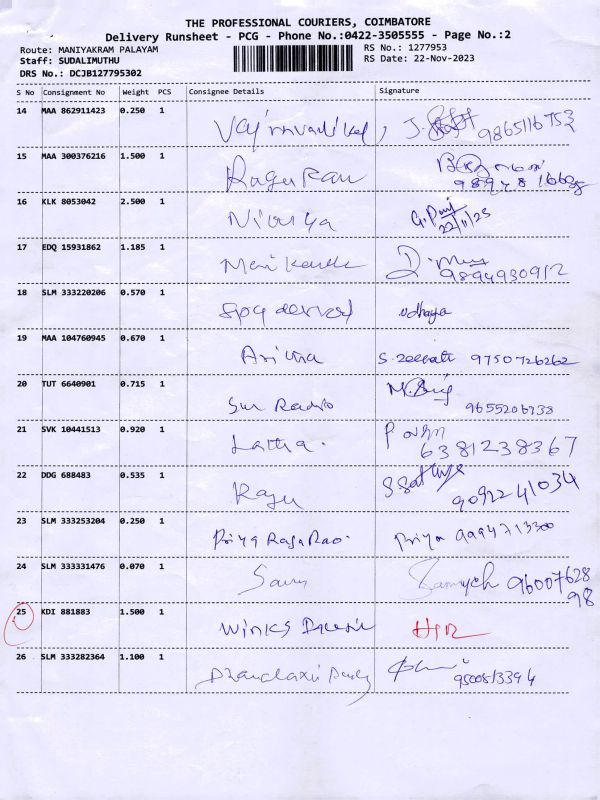 THE PROFESSIONAL COURIERS, COIMBATORE
Delivery Runsheet - PCG - Phone No.:0422-3505555 - Page No.:2
Route: MANIYAKRAM PALAYAM RS No.: 1277953
Staff: SUDALIMUTHU RS Date: 22-Nov-2023
DRS No.: DCJB127795302
S No Consignment No Weight PCS Consignee Details Signature
14 MAA 862911423 0.250 1 9865116753
15 MAA 300376216 1.500 1 Ragu Ram
16 KLK 8053042 2.500 1 Nivya 22/11/23
17 EDQ 15931862 1.185 1 9894930912
18 SLM 333220206 0.570 1 udhaya
19 MAA 104760945 0.670 1 9750726262
20 TUT 6640901 0.715 1 Sur Radio
9655206738
21 SVK 10441513 0.920 1 Latha.
6381238367
22 DDG 688483 0.535 1 Raju
9092241034
23 SLM 333253204 0.250 1 Priya RagaRao. Priya 9994713300
24 SLM 333331476 0.070 1 96007628
98
25 KDI 881883 1.500 1 Winks
26 SLM 333282364 1.100 1
9500513394